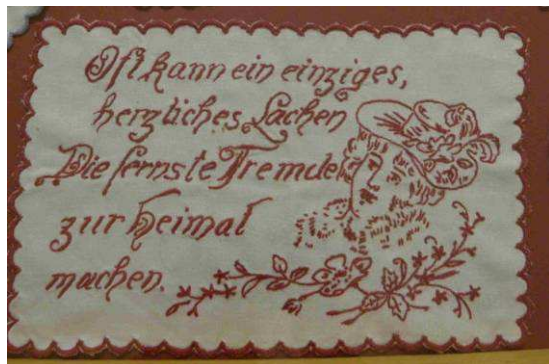 Oft kann ein einziges,
herzliches Lachen
Die fernste Fremde
zur Heimat
machen.